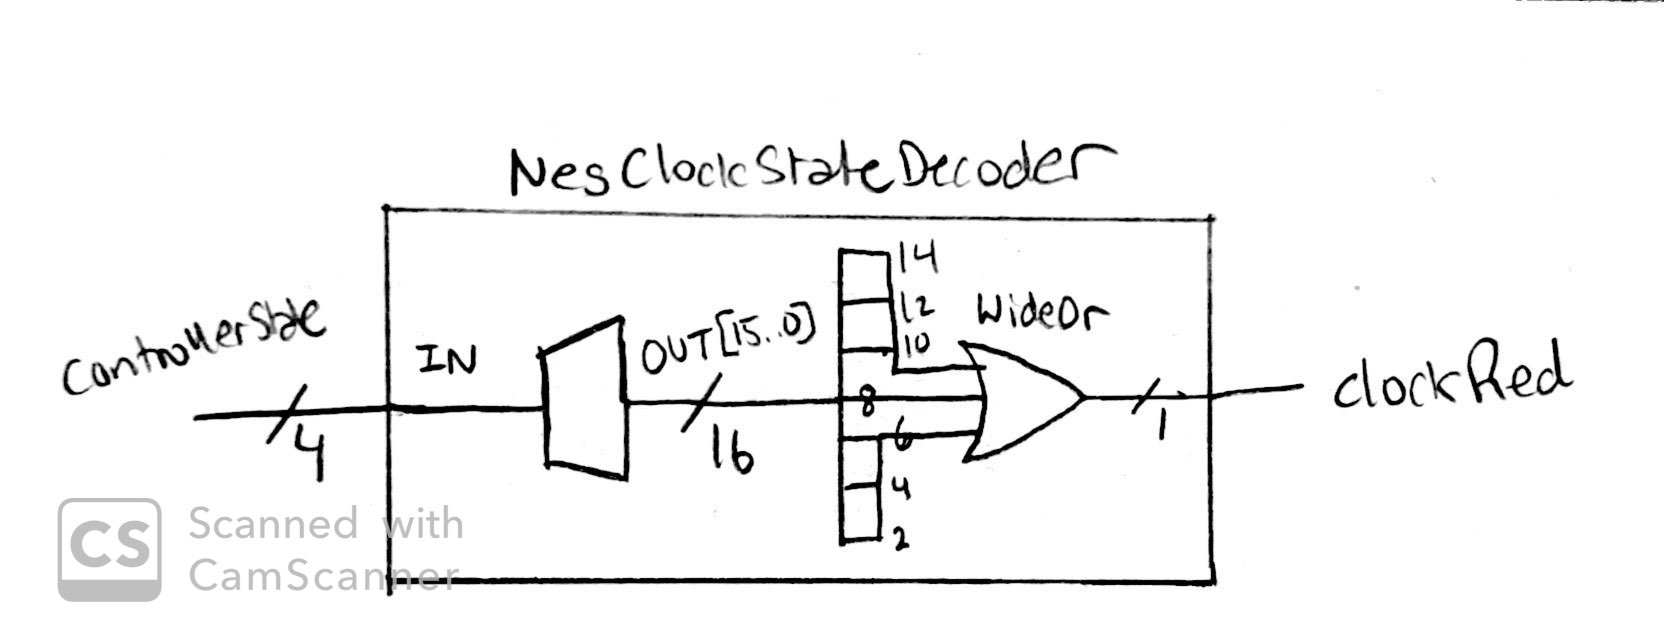 NesClockStateDecoder
ControllerState
4
IN
OUT[15..0]
16
14
12
10
8
6
4
2
WideOr
1
clockRed
CS Scanned with
CamScanner